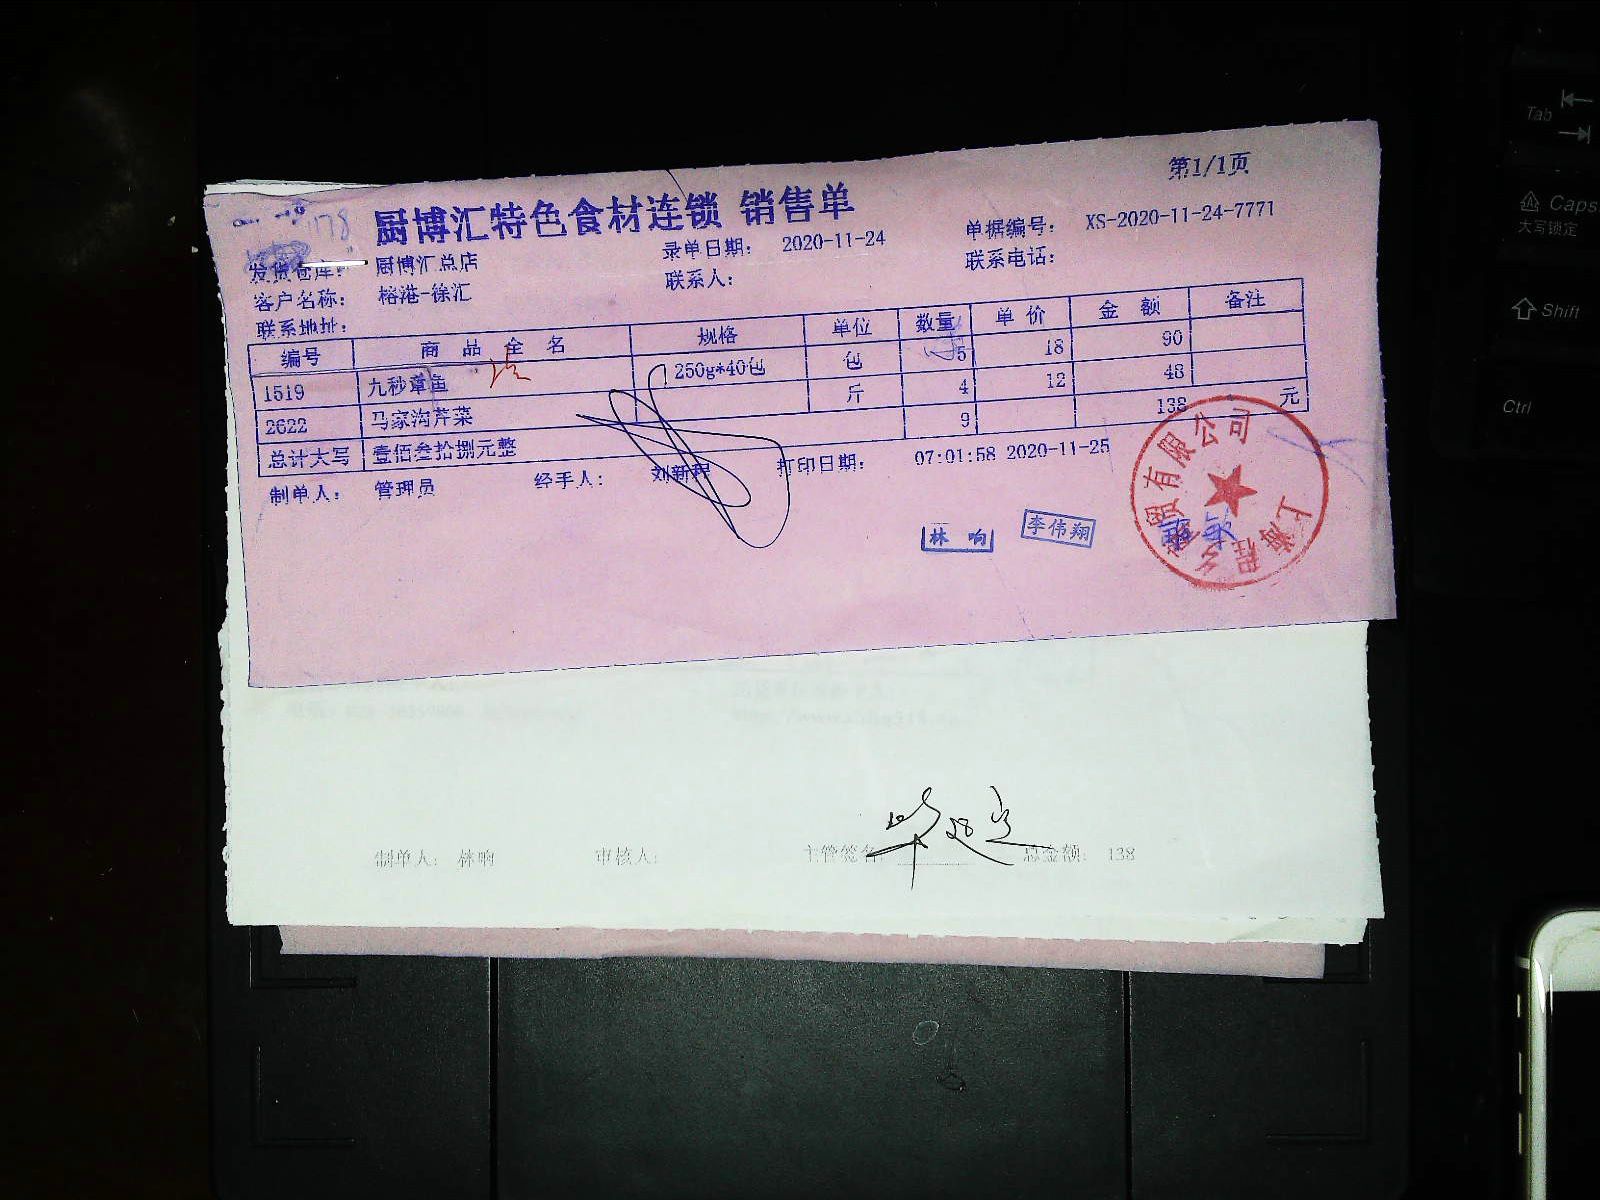 第1/1页
厨博汇特色食材连锁 销售单
录单日期： 2020-11-24
单据编号： XS-2020-11-24-7771
发货仓库： 厨博汇总店
联系人：
联系电话：
客户名称： 榕港-徐汇
联系地址：
编号 商品全名 规格 单位 数量 单价 金额 备注
1519 九秒章鱼 250g*40包 包 5 18 90
2622 马家沟芹菜 斤 4 12 48
总计大写 壹佰叁拾捌元整 9 138 元
制单人： 管理员 经手人： 刘新程 打印日期： 07:01:58 2020-11-25
林响
李伟翔
制单人： 林响 审核人： 主管签名： 总金额： 138
Tab
Caps
大写锁定
Shift
Ctrl